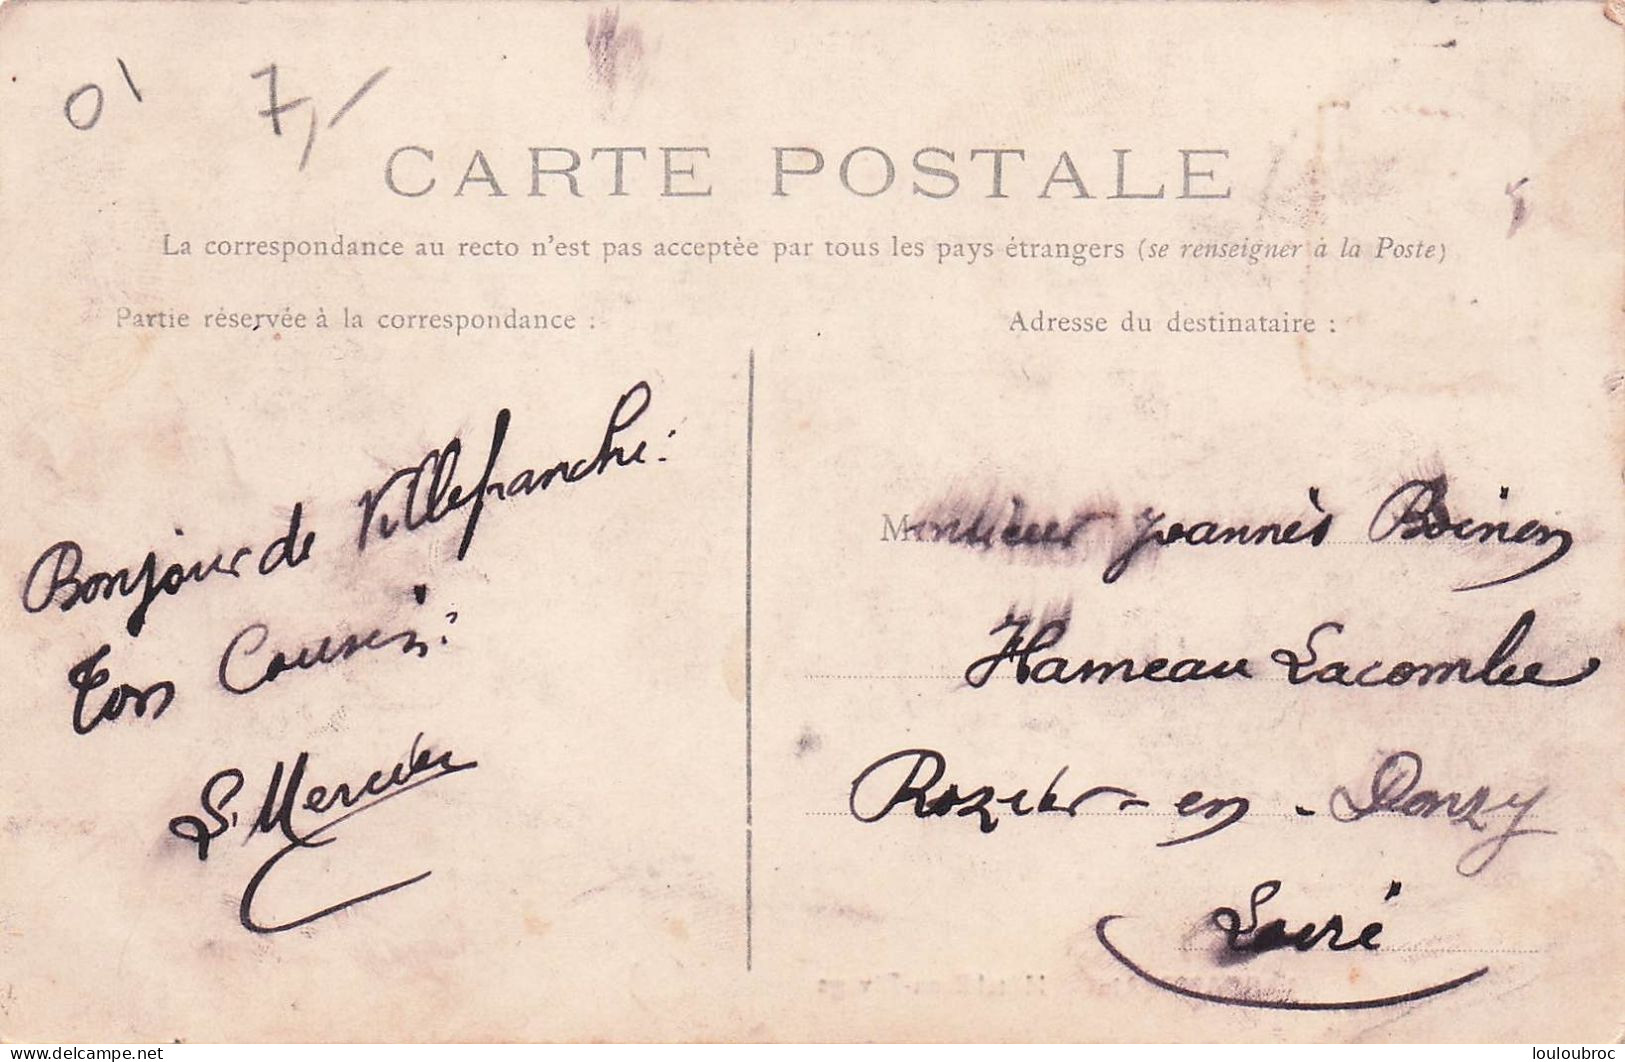 01 7,-
CARTE POSTALE
La correspondance au recto n'est pas acceptée par tous les pays étrangers (se renseigner à la Poste)
Partie réservée à la correspondance :
Adresse du destinataire :
Bonjour de Villefranche.
Ton Cousin.
S. Mercier
Monsieur Joannès
Hameau Lacombe
Rozier-en-Donzy
Loire
delcampe.net
louloubroc